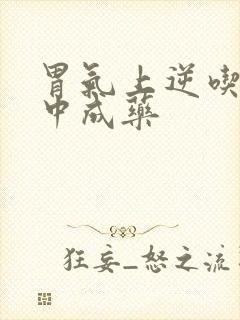 胃氣上逆喫
中成藥
狂妄_怒之流